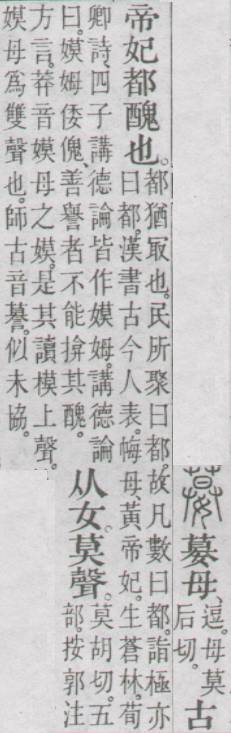 嫫母、逗。母莫后切。古
帝妃都醜也。都猶冣也。民所聚曰都。故凡數曰都。詣極亦
曰都。漢書古今人表。悔母、黃帝妃。生蒼林。荀
卿詩、四子講德論皆作嫫姆。講德論
曰。嫫姆倭傀、善譽者不能揜其醜。从女。莫聲。莫胡切。五
部。按郭注
方言。莽音嫫母之嫫。是其讀模上聲。
嫫母爲雙聲也。師古音謩。似未協。